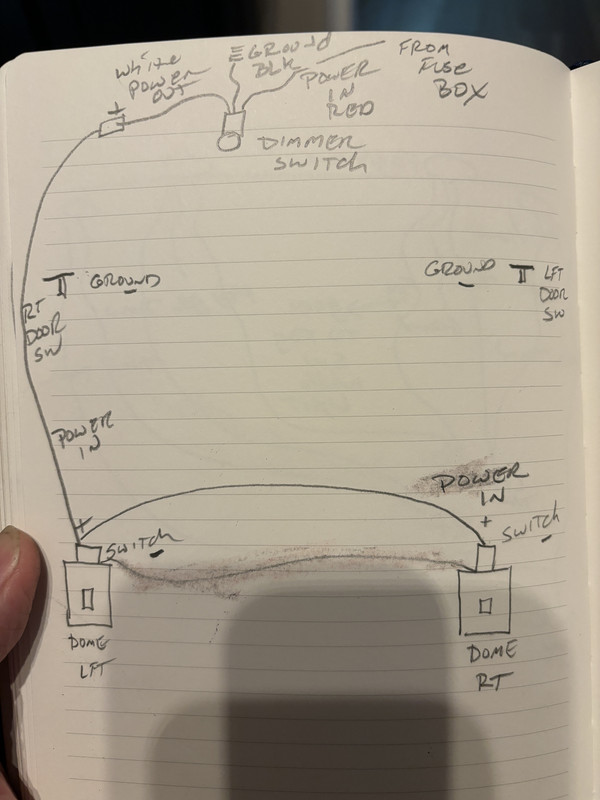 White
POWER
OUT
GROUND
BLK
POWER
IN
RED
FROM
FUSE
BOX
+
DIMMER
SWITCH
GROUND
RT
DOOR
SW
GROUND
LFT
DOOR
SW
POWER
IN
+
SWITCH
POWER
IN
+
SWITCH
DOME
LFT
DOME
RT